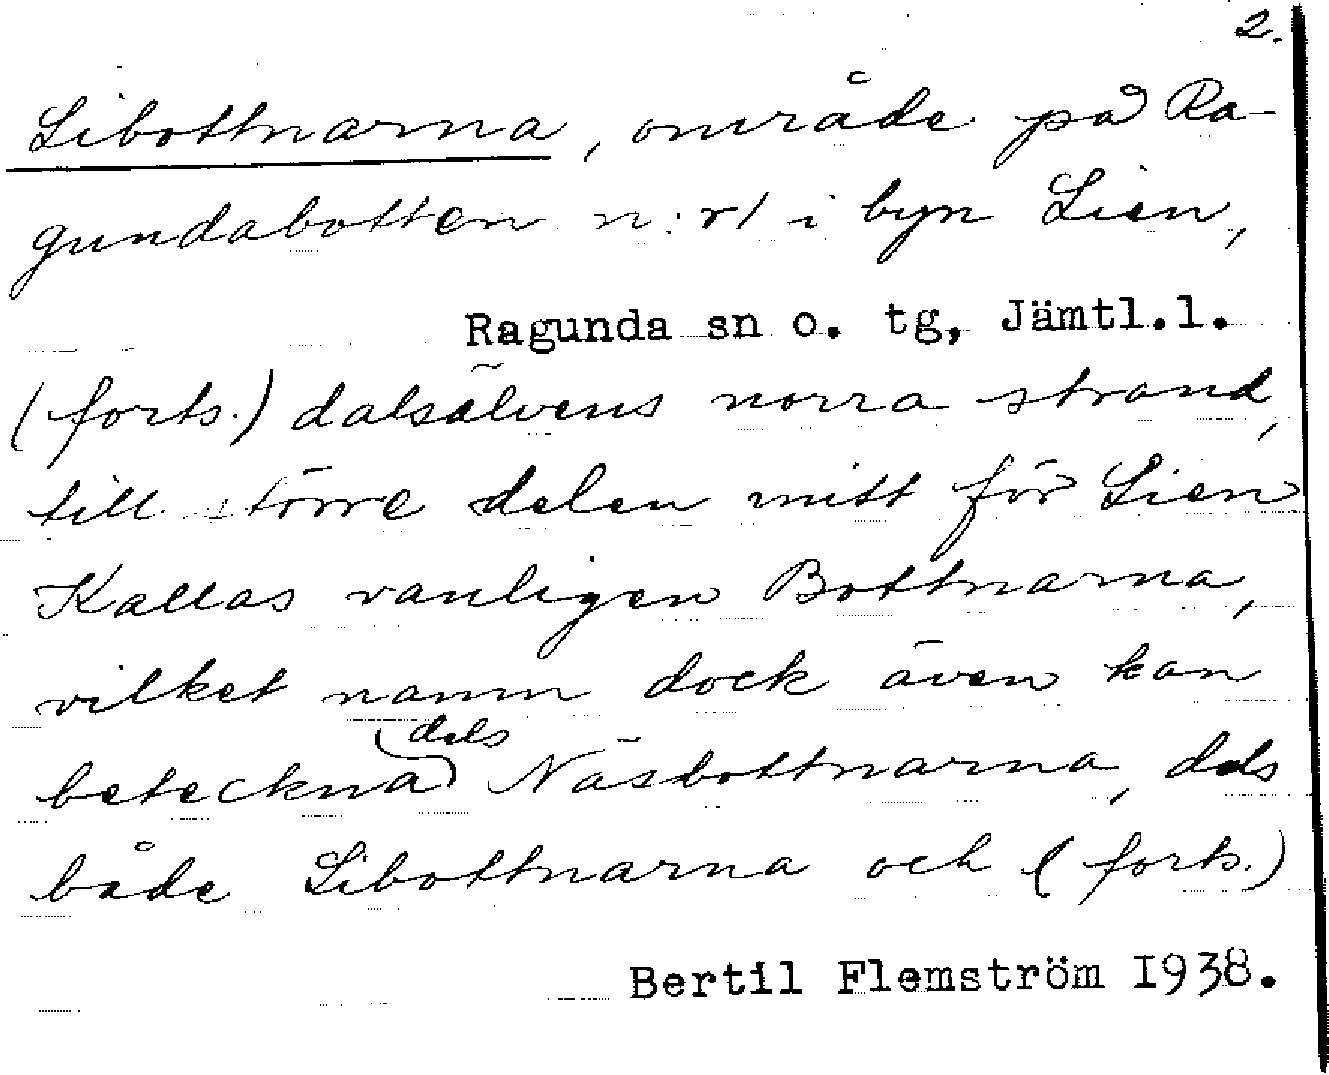 2.
Libottnarna, område på Ra-
gundabotten n:r 1 i byn Lien,
Ragunda sn o. tg, Jämtl.l.
(forts.) dalsälvens norra strand,
till större delen mitt för Lien
Kallas vanligen Bottnarna,
vilket namn dock även kan
beteckna dels Näsbottnarna, dels
både Libottnarna och (forts.)
Bertil Flemström 1938.